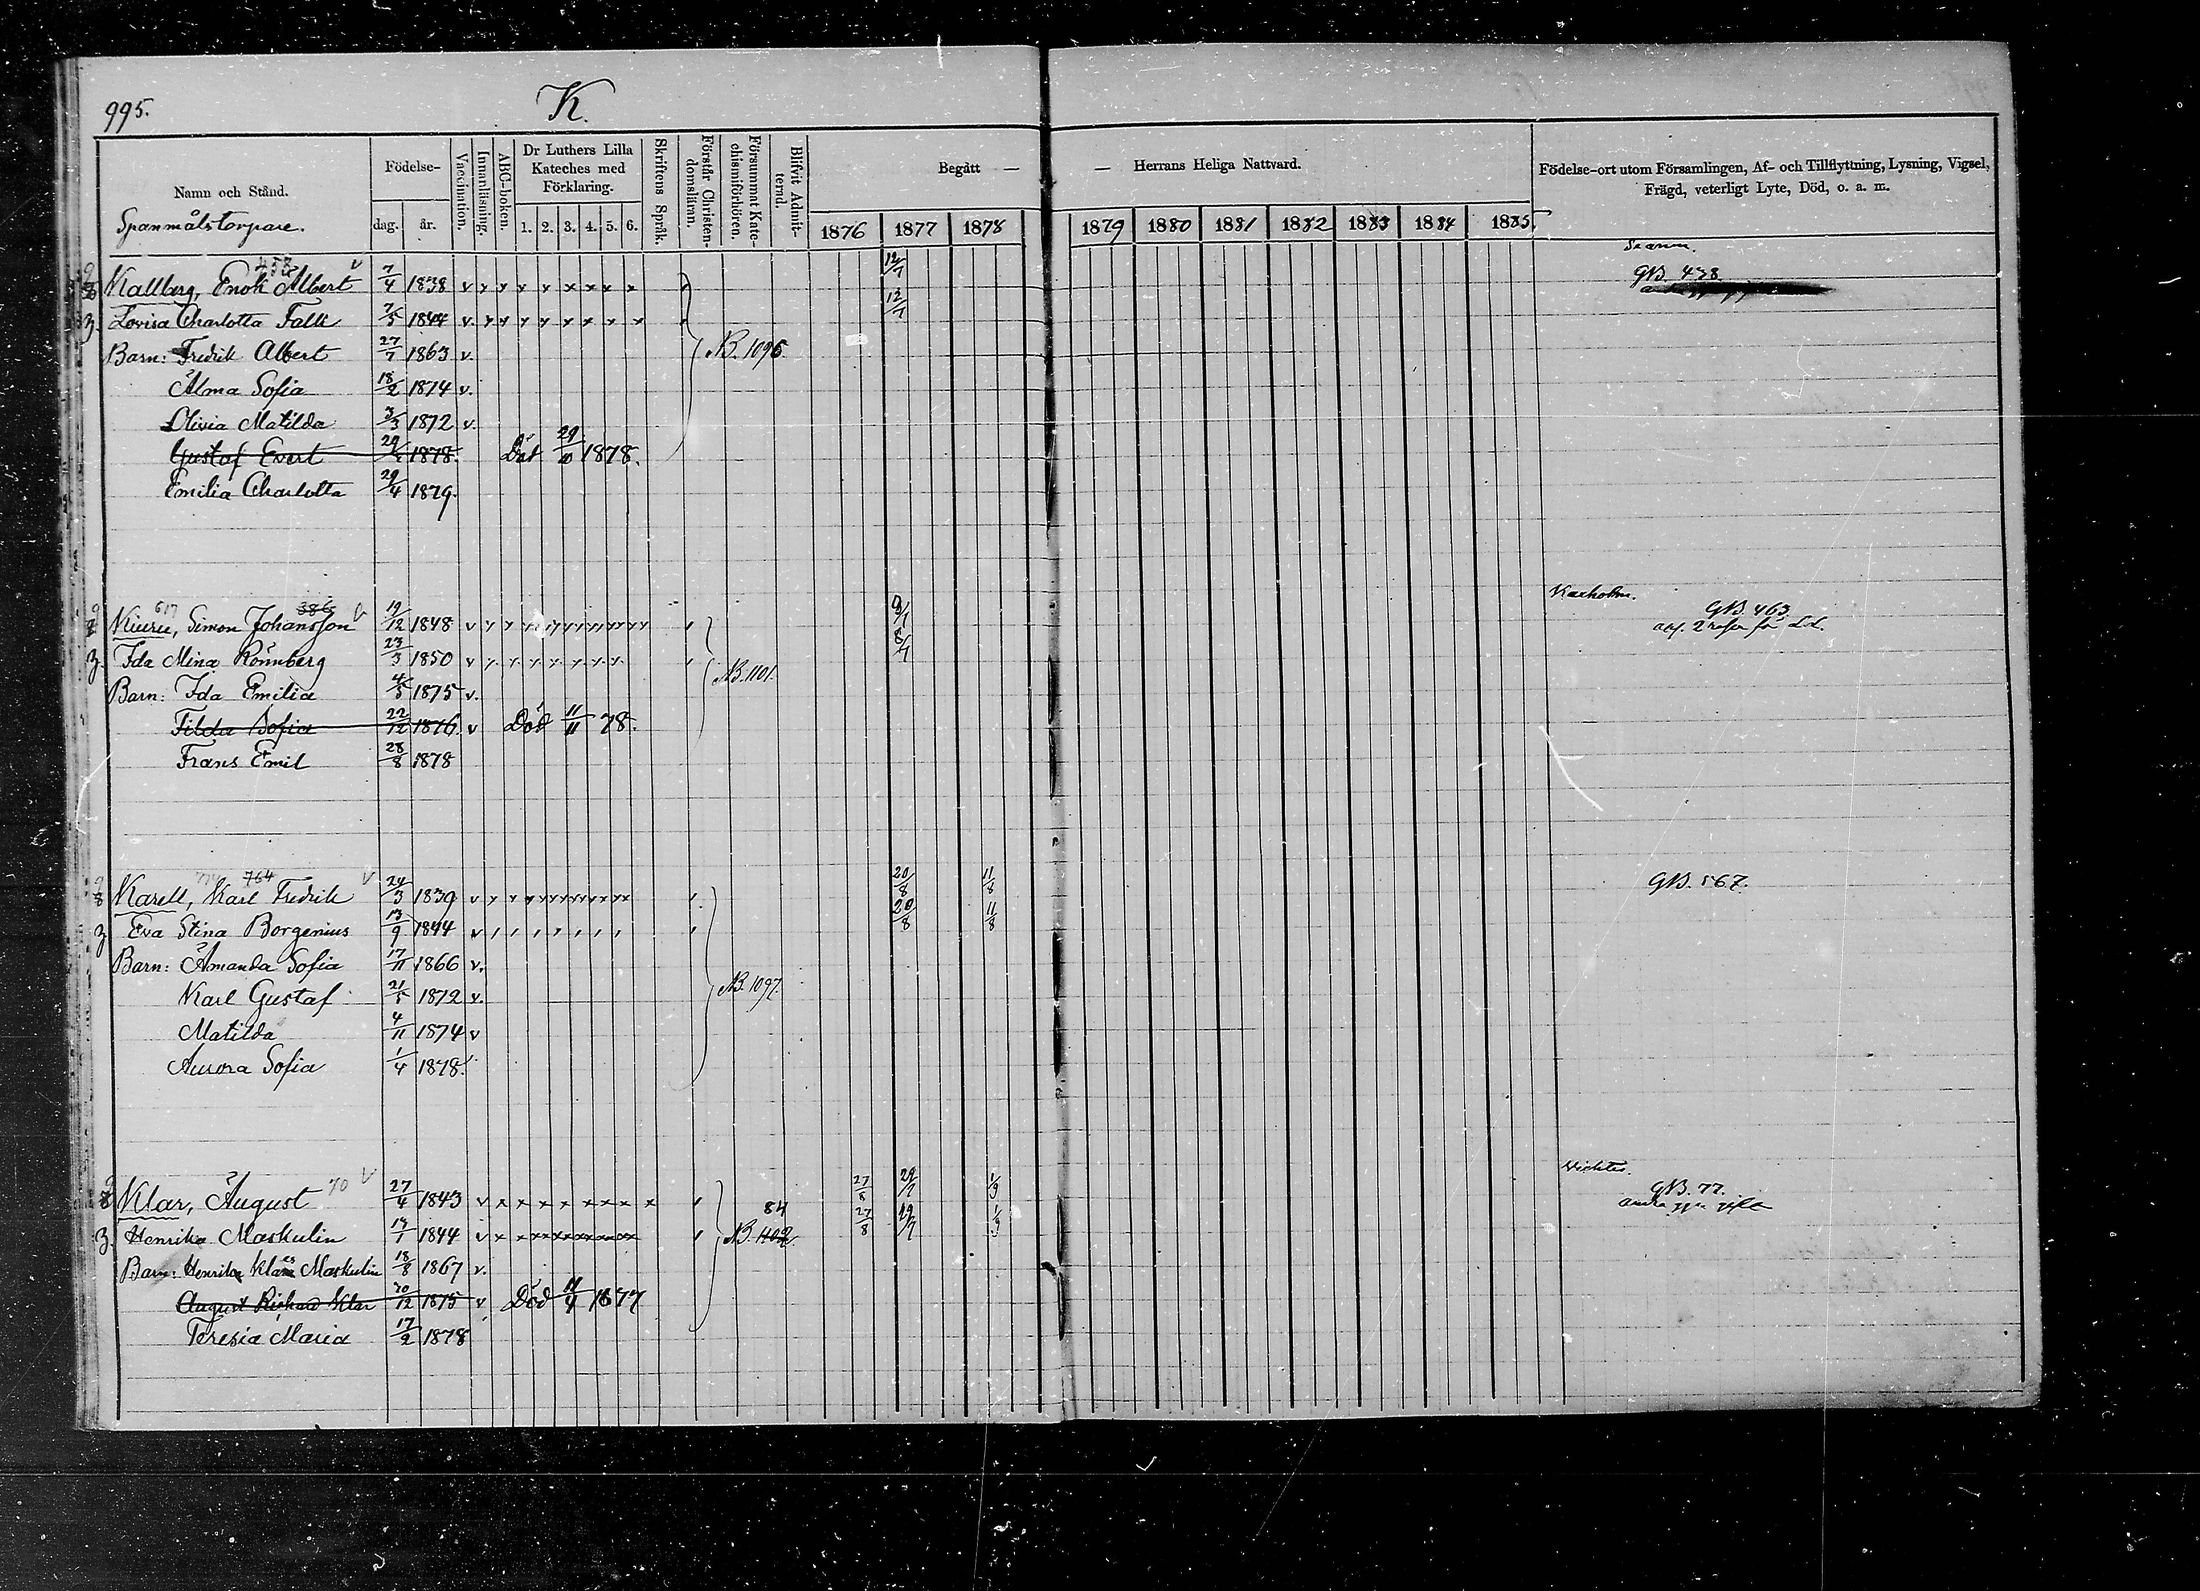 995.
K.
Namn och Stånd.
Spanmålstorpare.
Födelse-
dag.
år.
Vaccination.
Innanläsning.
ABC-boken.
Dr Luthers Lilla Kateches med Förklaring.
1. 2. 3. 4. 5. 6.
Skriftens Språk.
Förstår Christendomsläran.
Försummat Katechismiförhören.
Blifvit Admitterad.
Begått — — Herrans Heliga Nattvard.
1876 1877 1878 1879 1880 1881 1882 1883 1884 1885
Födelse-ort utom Församlingen, Af- och Tillflyttning, Lysning, Vigsel,
Frägd, veterligt Lyte, Död, o. a. m.
458
Kallberg, Enok Albert 7/4 1838 12/7 GB. 438
Lovisa Charlotta Falk 7/5 1844 12/7
Barn: Fredrik Albert 27/7 1863 v. NB. 1096.
Alma Sofia 18/2 1874 v.
Olivia Matilda 3/3 1872 v.
Gustaf Evert 1878. Död 29/10 1878.
Emilia Charlotta 29/4 1879.
Karholm.
617 386
Kiuru, Simon Johansson 19/12 1848 9/7 GB. 463
Ida Mina Rönnberg 23/3 1850 8/7
Barn: Ida Emilia 4/5 1875 v. NB. 1101.
Filda Sofia 22/12 1876 v Död 11/11 78.
Frans Emil 28/8 1878
774 764
Karell, Karl Fredrik 24/3 1839 20/8 11/8 GB. 567.
Eva Stina Borgenius 13/9 1844 20/8 11/8
Barn: Amanda Sofia 17/11 1866 v.
Karl Gustaf 21/5 1872 v. NB. 1097.
Matilda 4/11 1874 v
Aurora Sofia 1/4 1878.
Klar, August 70 27/4 1843 27/8 29/7 1/9 GB. 77.
84
Henrika Maskulin 19/1 1844 NB. 1102. 27/8 29/7 1/9
Barn: Henrika Klara Maskulin 18/8 1867 v.
August Richard Klar 1875 v Död 1877
Teresia Maria 17/2 1878